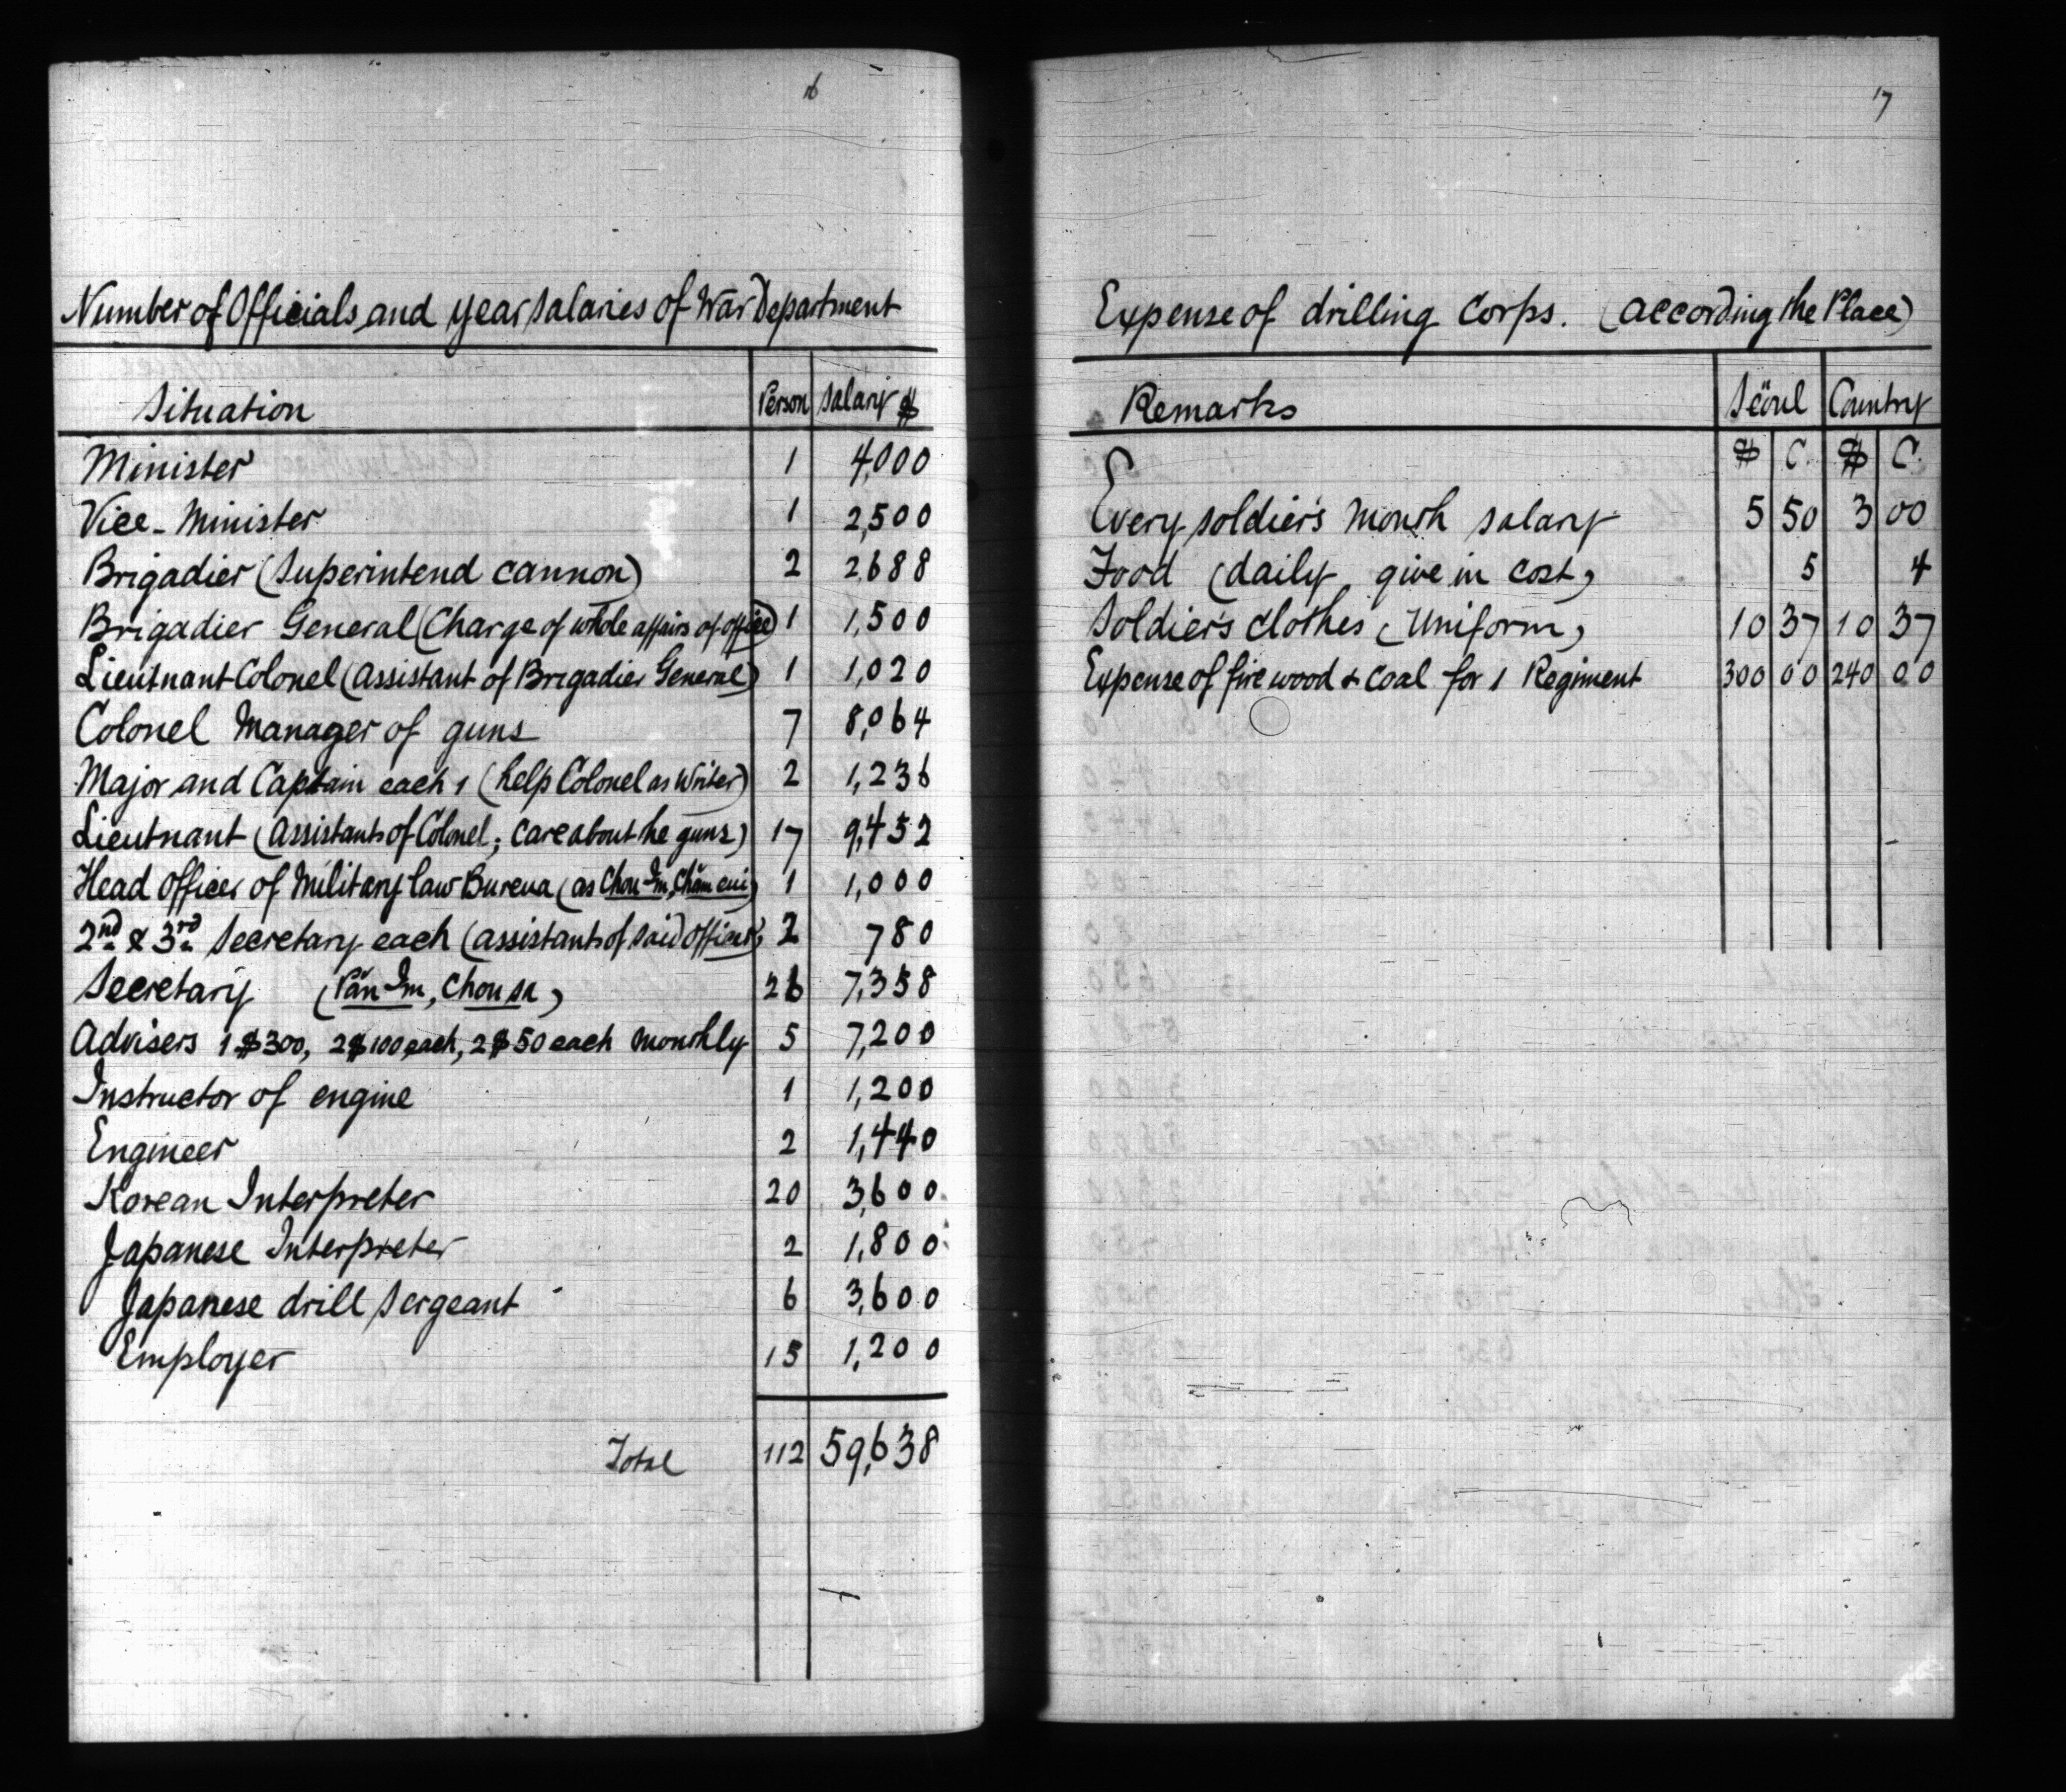 16
Number of Officials and year salaries of War Department
Situation Person Salary $
Minister 1 4,000
Vice-Minister 1 2,500
Brigadier (superintend cannon) 2 2,688
Brigadier General (Charge of whole affairs of office) 1 1,500
Lieutnant Colonel (assistant of Brigadier General) 1 1,020
Colonel Manager of guns 7 8,064
Major and Captain each 1 (help Colonel as writer) 2 1,236
Lieutnant (assistants of Colonel; care about he guns) 17 9,452
Head officer of Military law Bureua (as Chou Im, Chăm eui) 1 1,000
2nd & 3rd Secretary each (assistants of said officer) 2 780
Secretary (Păn Im, Chousa) 26 7,358
Advisers 1 $300, 2 $100 each, 2 $50 each monthly 5 7,200
Instructor of engine 1 1,200
Engineer 2 1,440
Korean Interpreter 20 3,600
Japanese Interpreter 2 1,800
Japanese drill Sergeant 6 3,600
Employer 15 1,200
Total 112 59,638
17
Expense of drilling Corps. (according the Place)
Remarks Sëoul Country
$ C. $ C.
Every soldier's month salary 5 50 3 00
Food (daily, give in cost) 5 4
Soldier's clothes (Uniform) 10 37 10 37
Expense of fire wood & coal for 1 Regiment 300 00 240 00